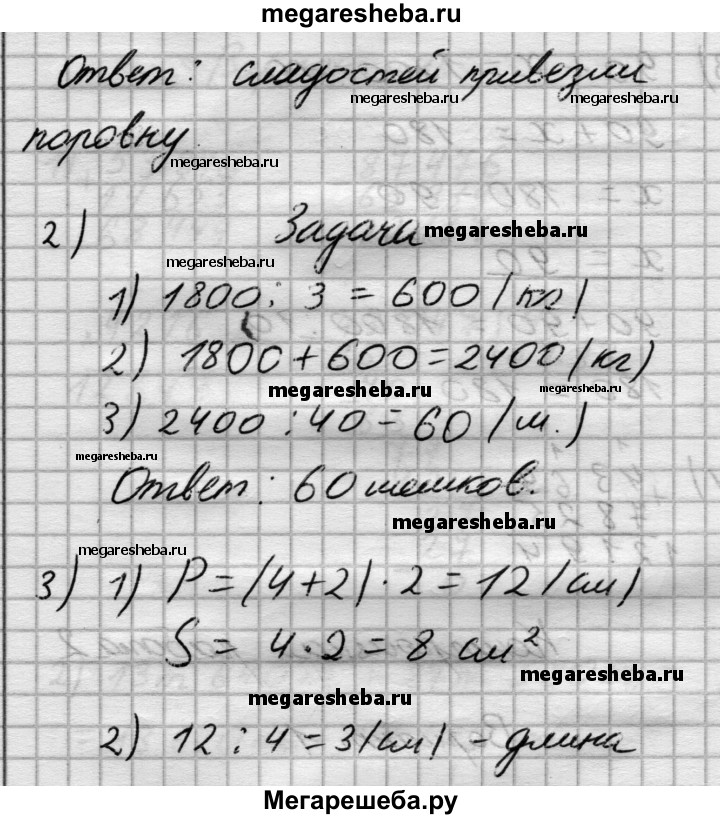 megaresheba.ru
Ответ: сладостей привезли
megaresheba.ru megaresheba.ru
поровну.
megaresheba.ru
2) Задача megaresheba.ru
megaresheba.ru
1) 1800 : 3 = 600 (кг)
2) 1800 + 600 = 2400 (кг)
megaresheba.ru megaresheba.ru
3) 2400 : 40 = 60 (м.)
megaresheba.ru
Ответ: 60 мешков.
megaresheba.ru
megaresheba.ru
3) 1) P = (4 + 2) · 2 = 12 (см)
S = 4 · 2 = 8 см²
megaresheba.ru
megaresheba.ru
2) 12 : 4 = 3 (см) - длина
Мегарешеба.ру